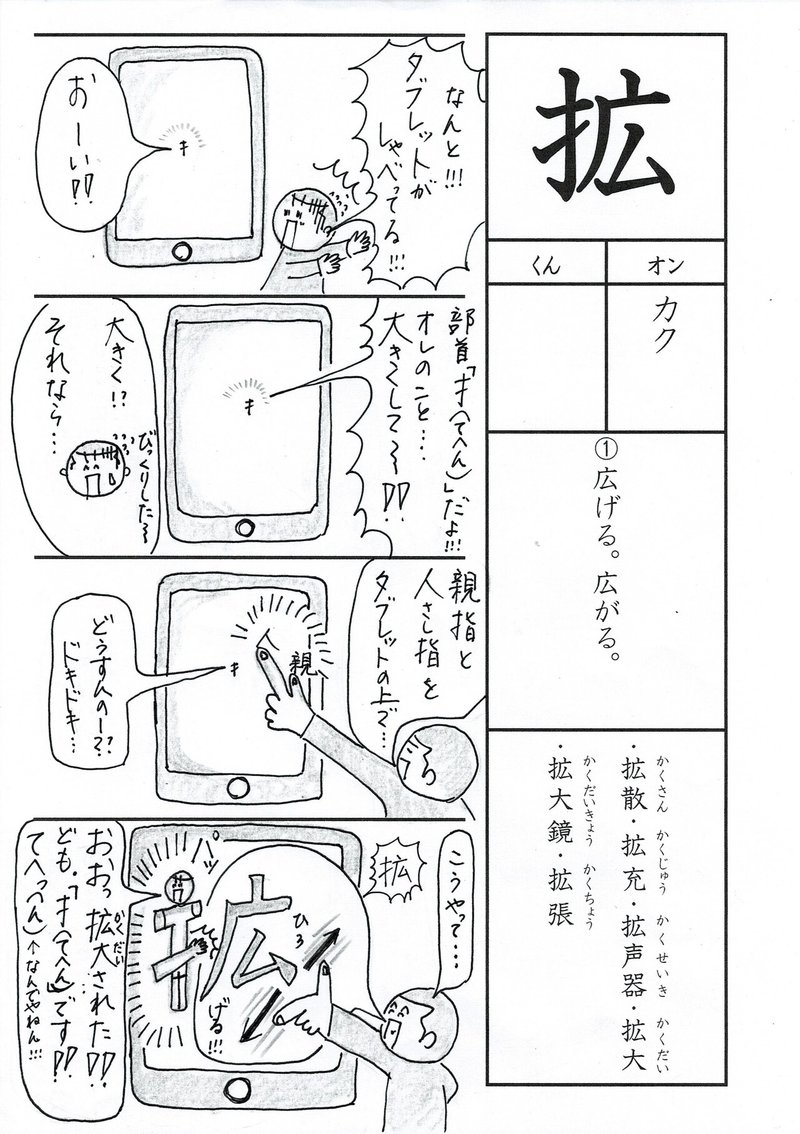 拡
オン
くん
カク
①広げる。広がる。
かくさん　かくじゅう　かくせいき　かくだい
・拡散・拡充・拡声器・拡大
かくだいきょう　かくちょう
・拡大鏡・拡張
なんと!!!
タブレットが
しゃべってる!!!
おーい!!
扌
部首「扌(てへん)」だよ!!!
オレのこと…
大きくして〜!!
扌
大きく!?
それなら…
びっくりした〜
親指と
人さし指を
タブレットの上で…
人
親
扌
どうすんのー??
ドキドキ…
こうやって…
拡
パッ
扌広
ひろ
げる!!!
おおっ拡大された!!
かくだい
ども、「扌(てへん)」です!!
てへっ(へん)↑なんでやねん!!!